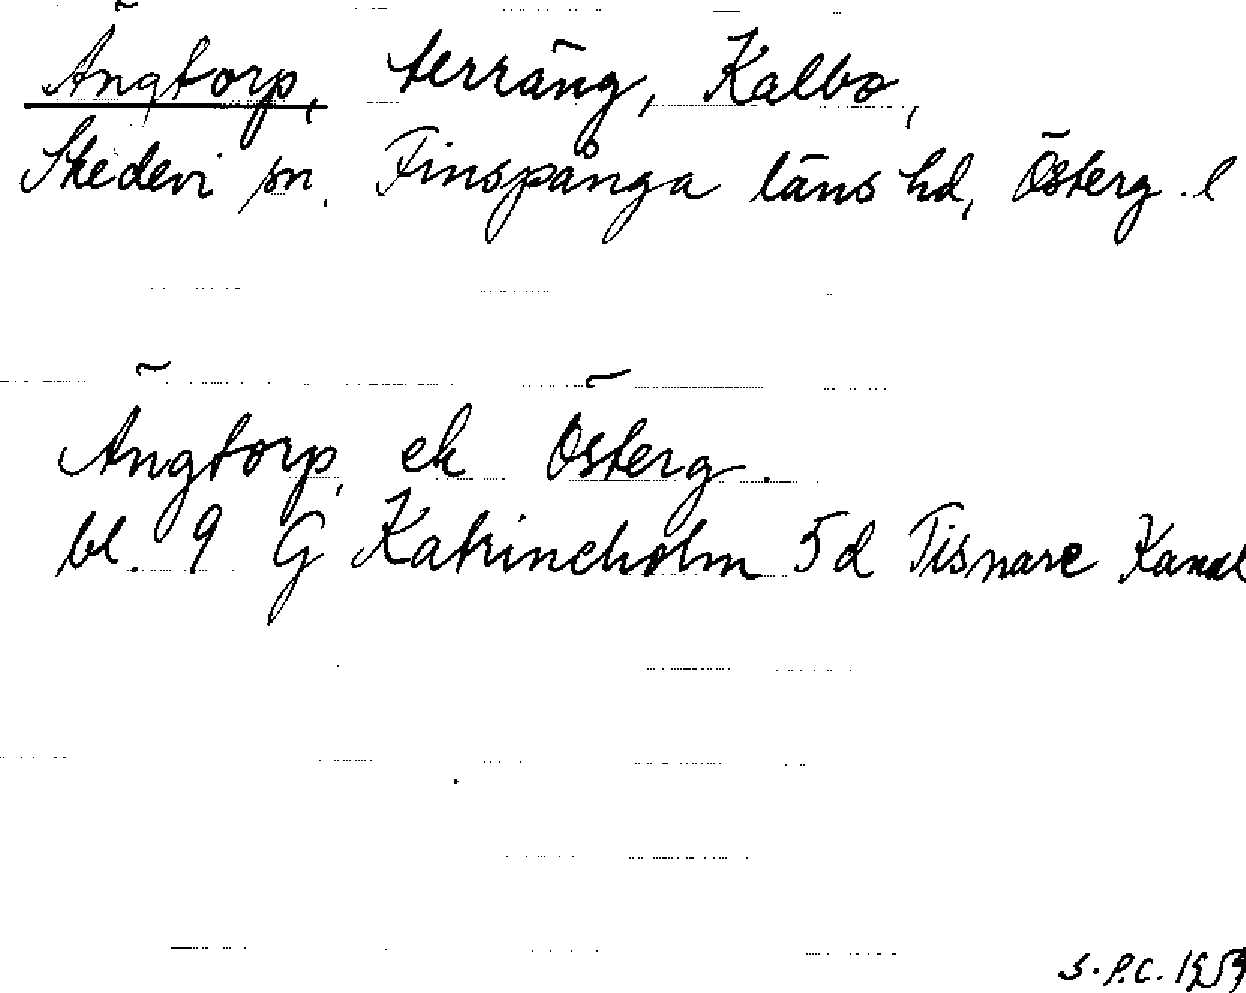 Ängtorp, terräng, Kalbo,
Skedevi sn. Finspånga läns hd, Österg. l
Ängtorp, ek Österg.
bl. 9 G Katrineholm 5d Tisnare Kanal
S.P.C. 1959